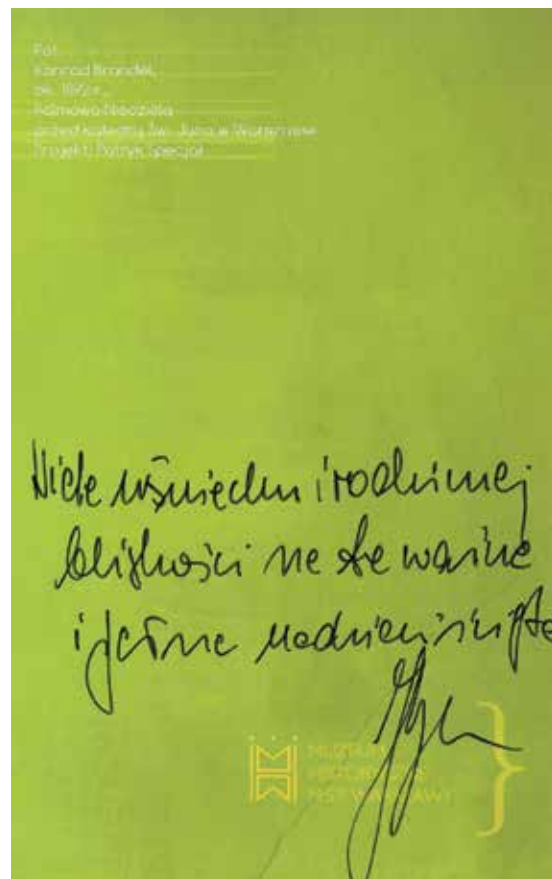 Fot.
Konrad Brandel,
ok. 1892 r.,
Palmowa Niedziela
przed katedrą Św. Jana w Warszawie
Projekt: Patryk Specjał
Wiele uśmiechu i rodzinnej
bliskości na te ważne
i jasne nadzieją święta
MUZEUM
HISTORYCZNE
M.ST. WARSZAWY